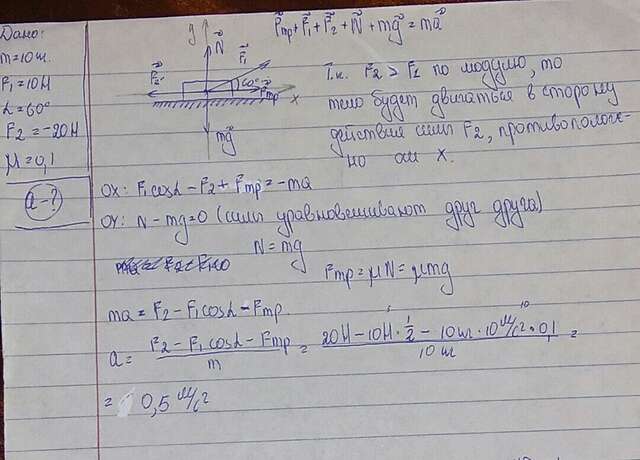 Дано:
m=10кг.
F₁=10Н
α=60°
F₂=-20Н
μ=0,1
a-?
y
N⃗
F⃗₁
F⃗₂
60°
F⃗тр
x
mg⃗
F⃗тр+F⃗₁+F⃗₂+N⃗+mg⃗=ma⃗
Т.к. F₂>F₁ по модулю, то
тело будет двигаться в сторону
действия силы F₂, противополож-
но оси X.
OX: F₁cosα-F₂+Fтр=-ma
OY: N-mg=0 (силы уравновешивают друг друга)
N=mg
Fтр=μN=μmg
ma=F₂-F₁cosα-Fтр.
a= (F₂-F₁cosα-Fтр)/m = (20Н-10Н·1/2-10кг·10м/с²·0,1)/10кг =
= 0,5 м/с²